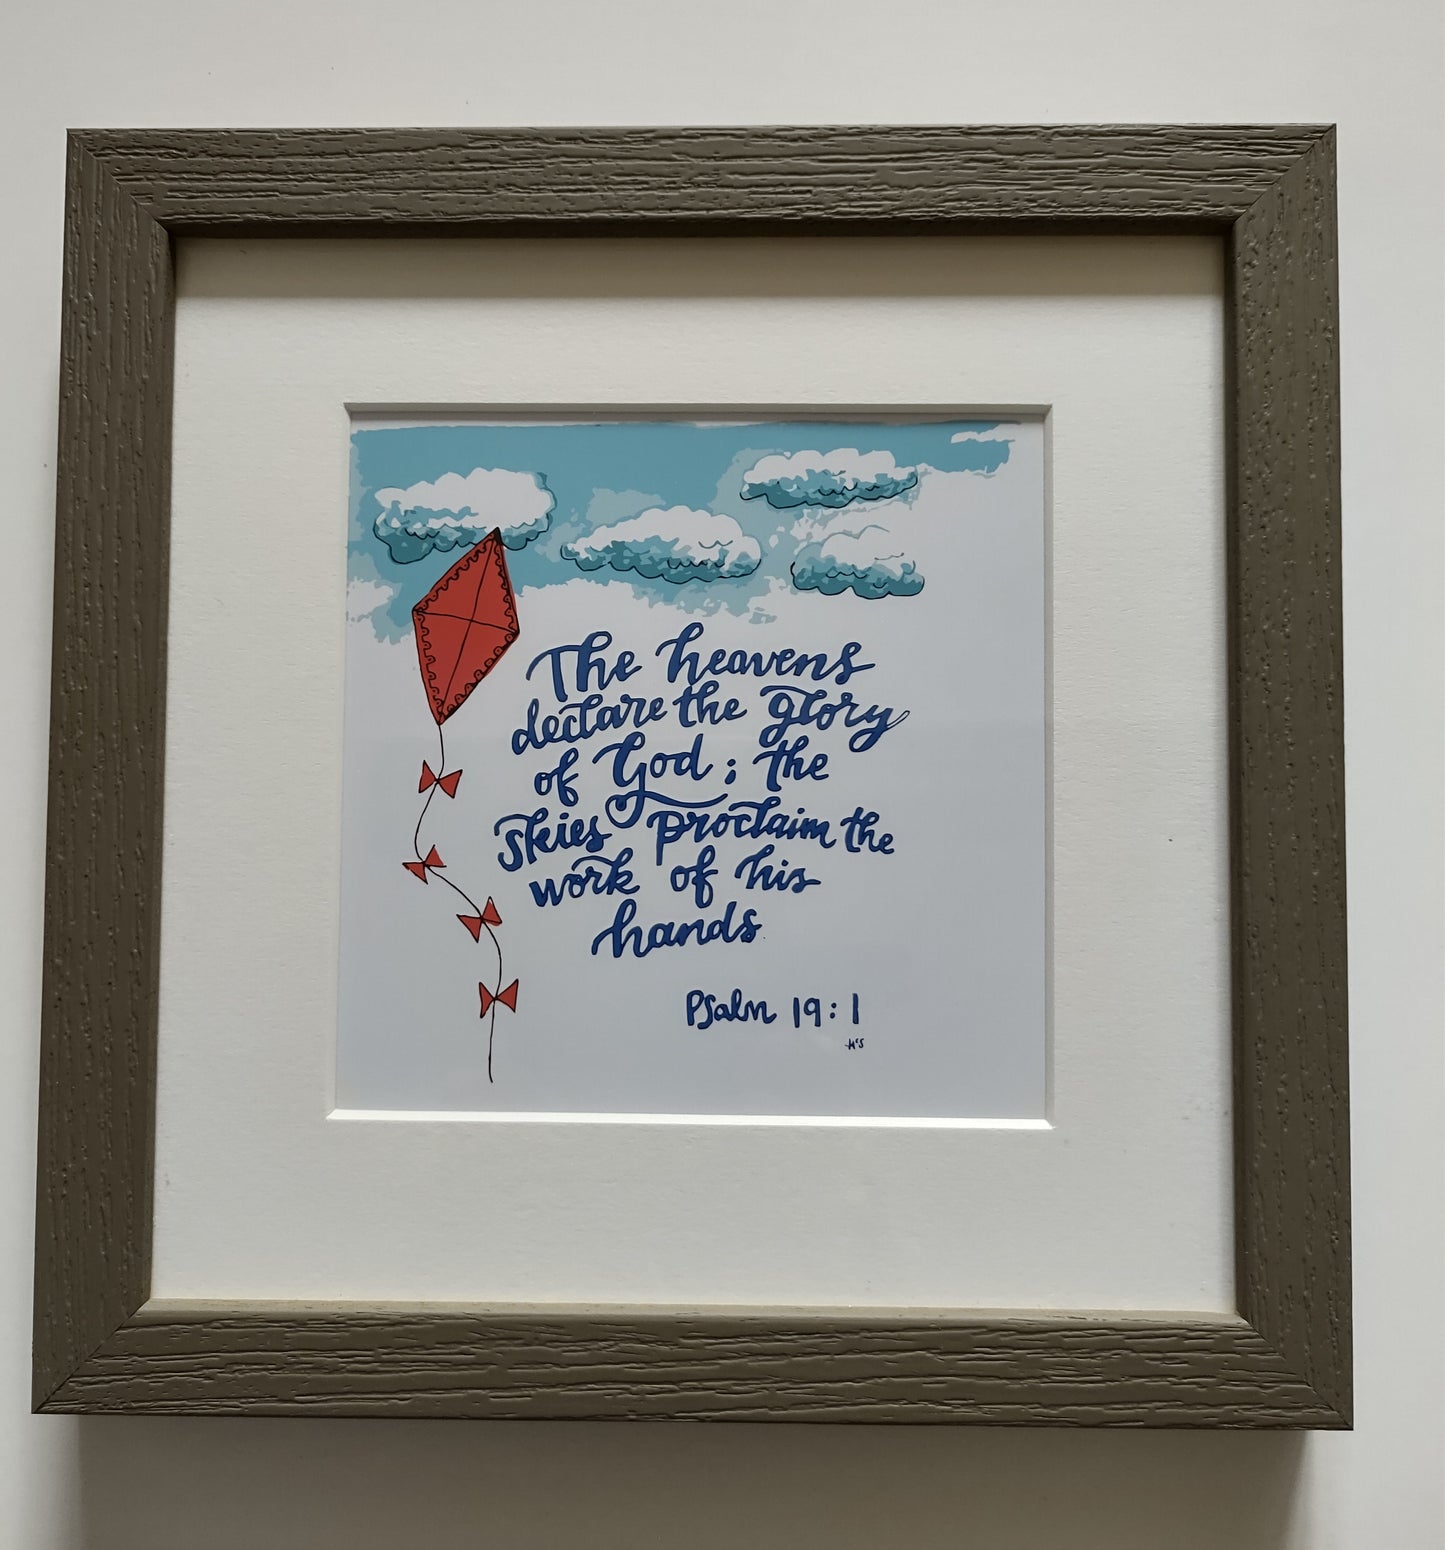 The heavens
declare the glory
of God; the
skies proclaim the
work of his
hands
Psalm 19:1